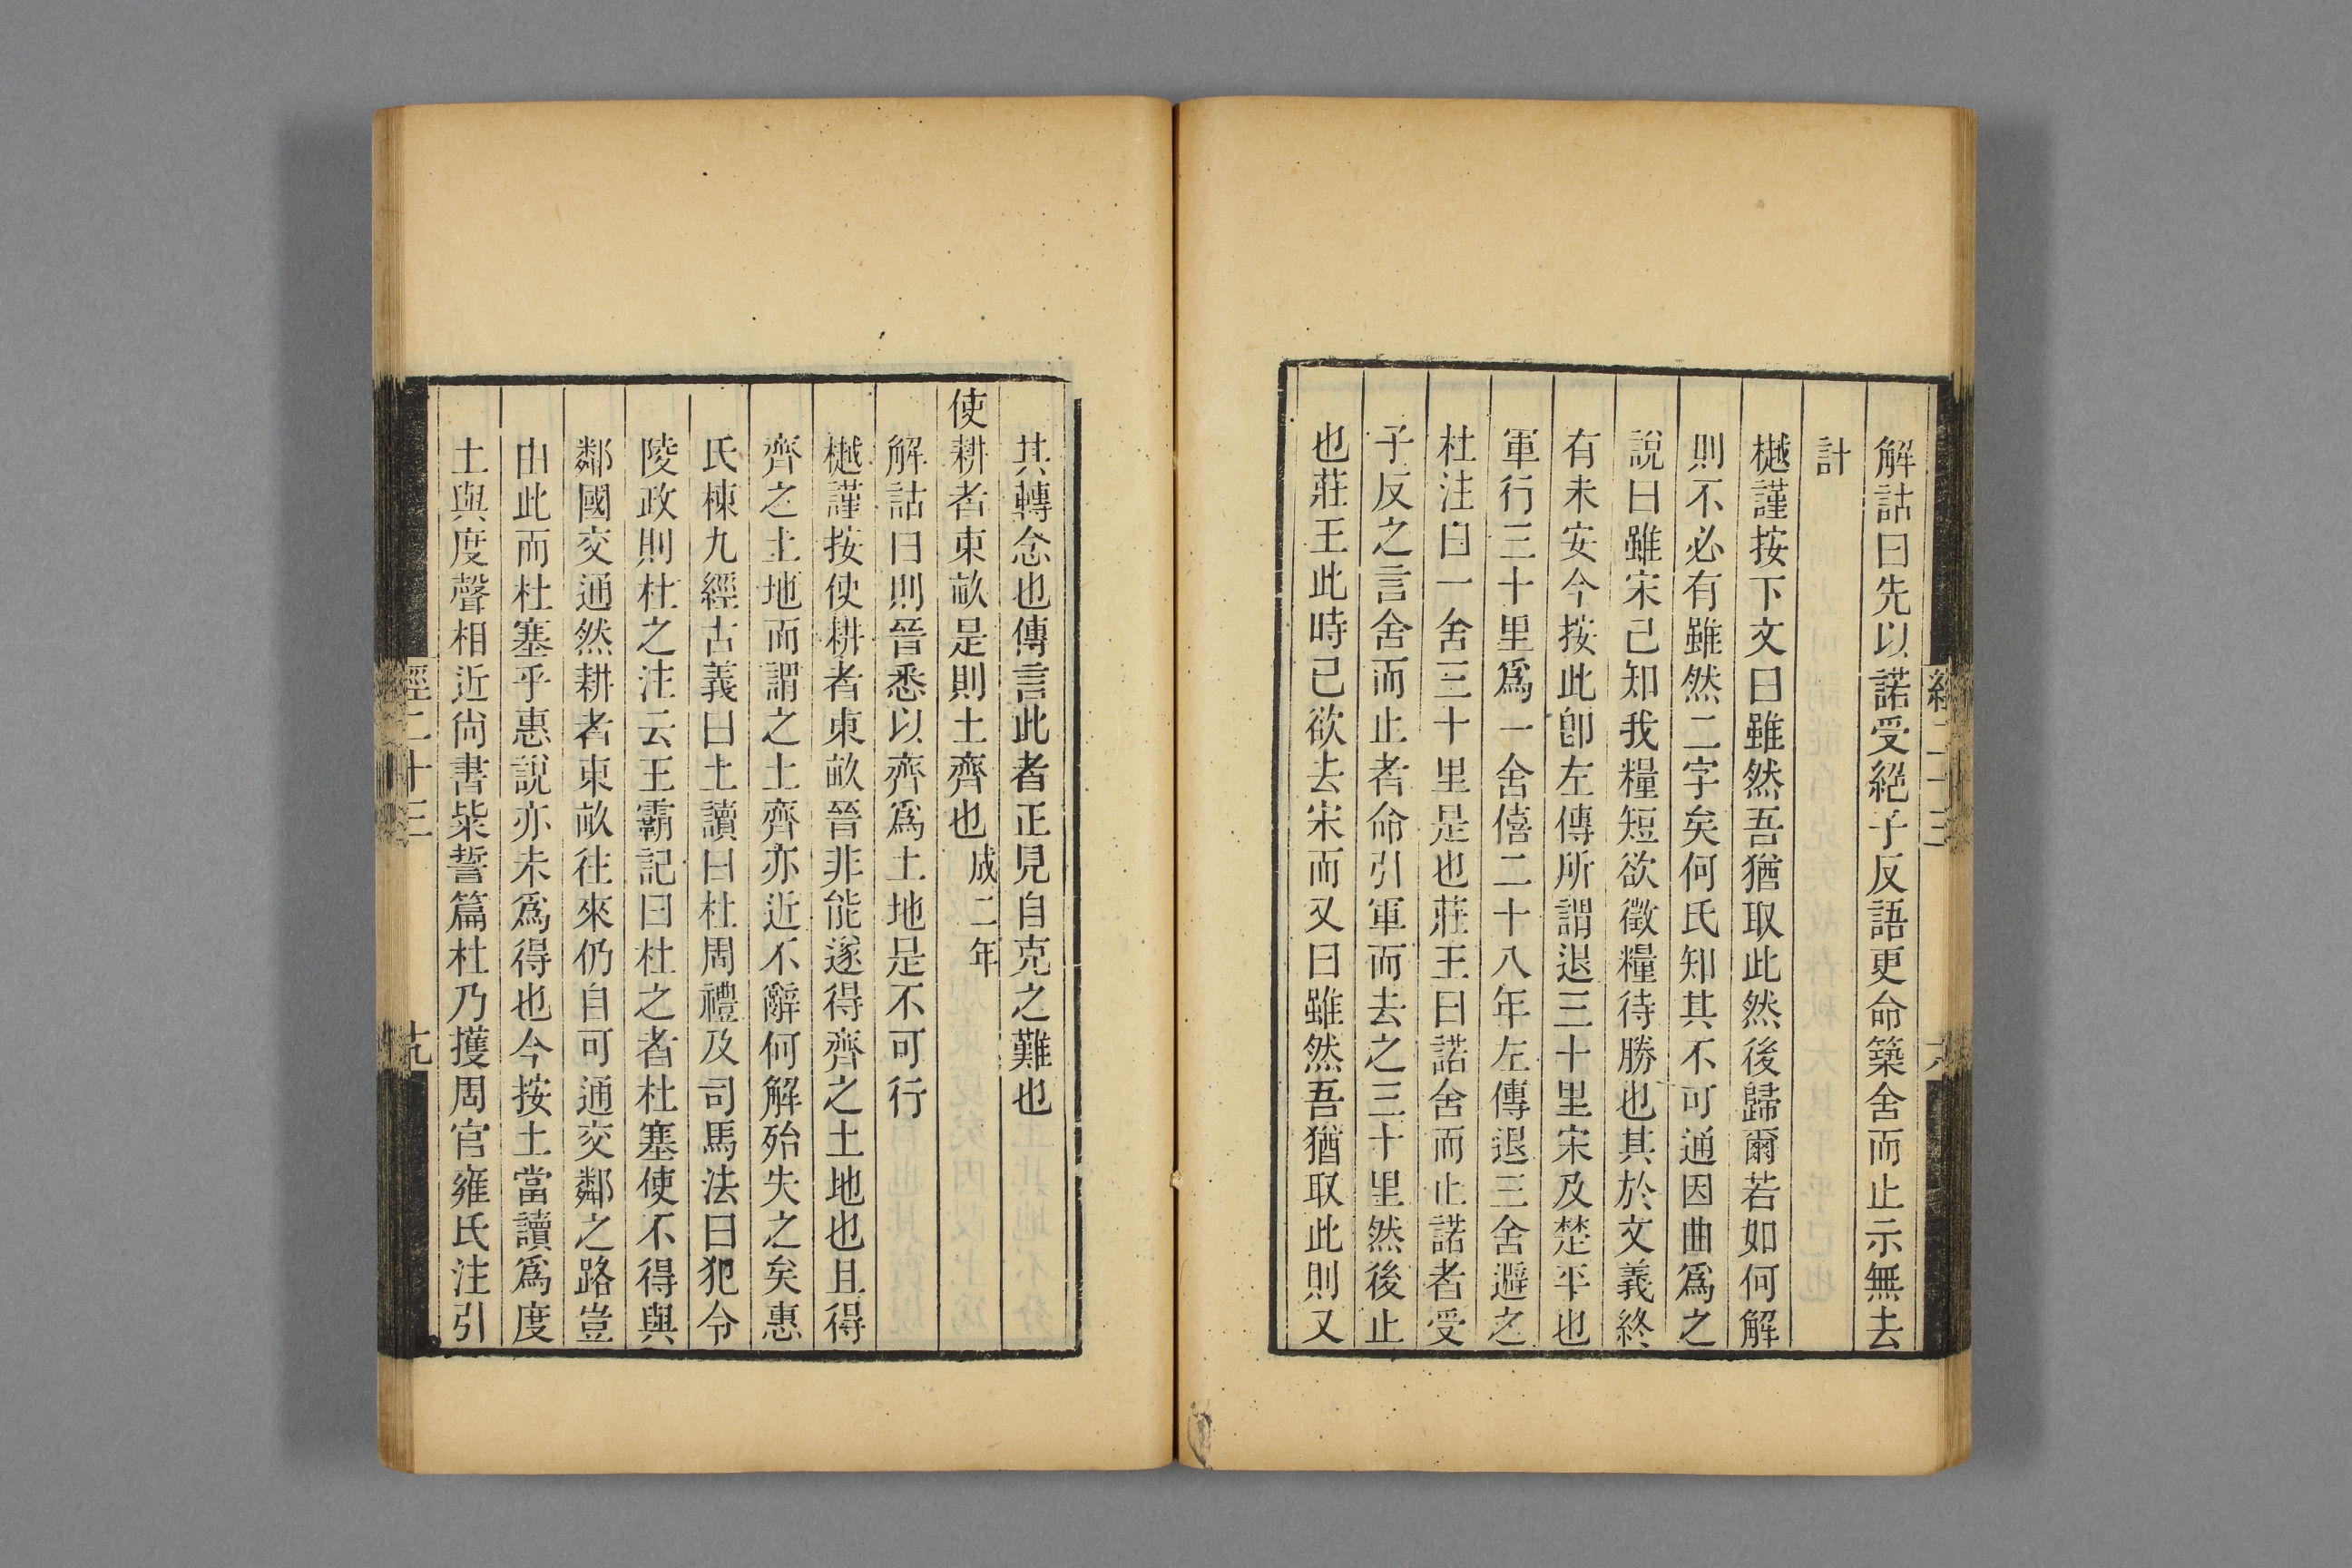 解詁曰先以諾受絕子反語更命築舍而止示無去
計
樾謹按下文曰雖然吾猶取此然後歸爾若如何解
則不必有雖然二字矣何氏知其不可通因曲爲之
說曰雖宋己知我糧短欲徵糧待勝也其於文義終
有未安今按此卽左傳所謂退三十里宋及楚平也
軍行三十里爲一舍僖二十八年左傳退三舍避之
杜注曰一舍三十里是也莊王曰諾舍而止諾者受
子反之言舍而止者命引軍而去之三十里然後止
也莊王此時已欲去宋而又曰雖然吾猶取此則又
其轉念也傳言此者正見自克之難也
使耕者東畝是則土齊也 成二年
解詁曰則晉悉以齊爲土地是不可行
樾謹按使耕者東畝晉非能遂得齊之土地也且得
齊之土地而謂之土齊亦近不辭何解殆失之矣惠
氏棟九經古義曰土讀曰杜周禮及司馬法曰犯令
陵政則杜之注云王霸記曰杜之者杜塞使不得與
鄰國交通然耕者東畝往來仍自可通交鄰之路豈
由此而杜塞乎惠說亦未爲得也今按土當讀爲度
土與度聲相近尙書柴誓篇杜乃擭周官雍氏注引
經二十三